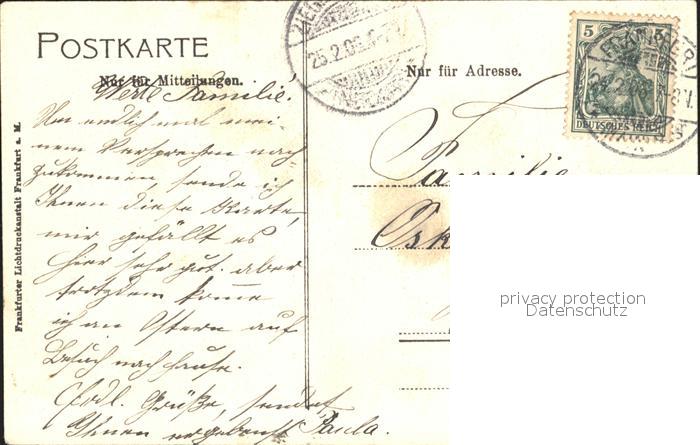 POSTKARTE
Nur für Mitteilungen.
Werte Familie!
Um endlich mal mei-
nem Versprechen nach-
zukommen, sende ich
Ihnen diese Karte,
mir gefällt es
hier sehr gut. aber
trotzdem kome
ich an Ostern auf
Besuch nach hause.
Frdl. Grüße, sendet
Ihnen ergebenst Paula.
Frankfurter Lichtdruckanstalt Frankfurt a. M.
25.2.08
Nur für Adresse.
5
DEUTSCHES REICH
Familie
Osk
privacy protection
Datenschutz